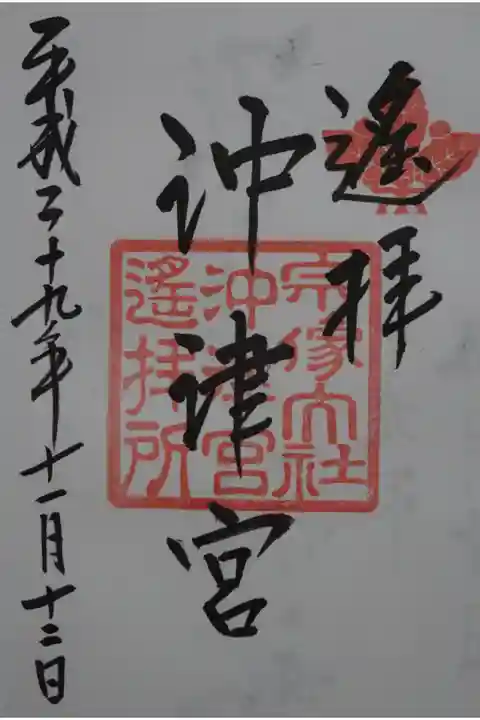 遙拝
沖津宮
宗像大社
沖津宮
遙拝所
平成二十九年十一月十二日